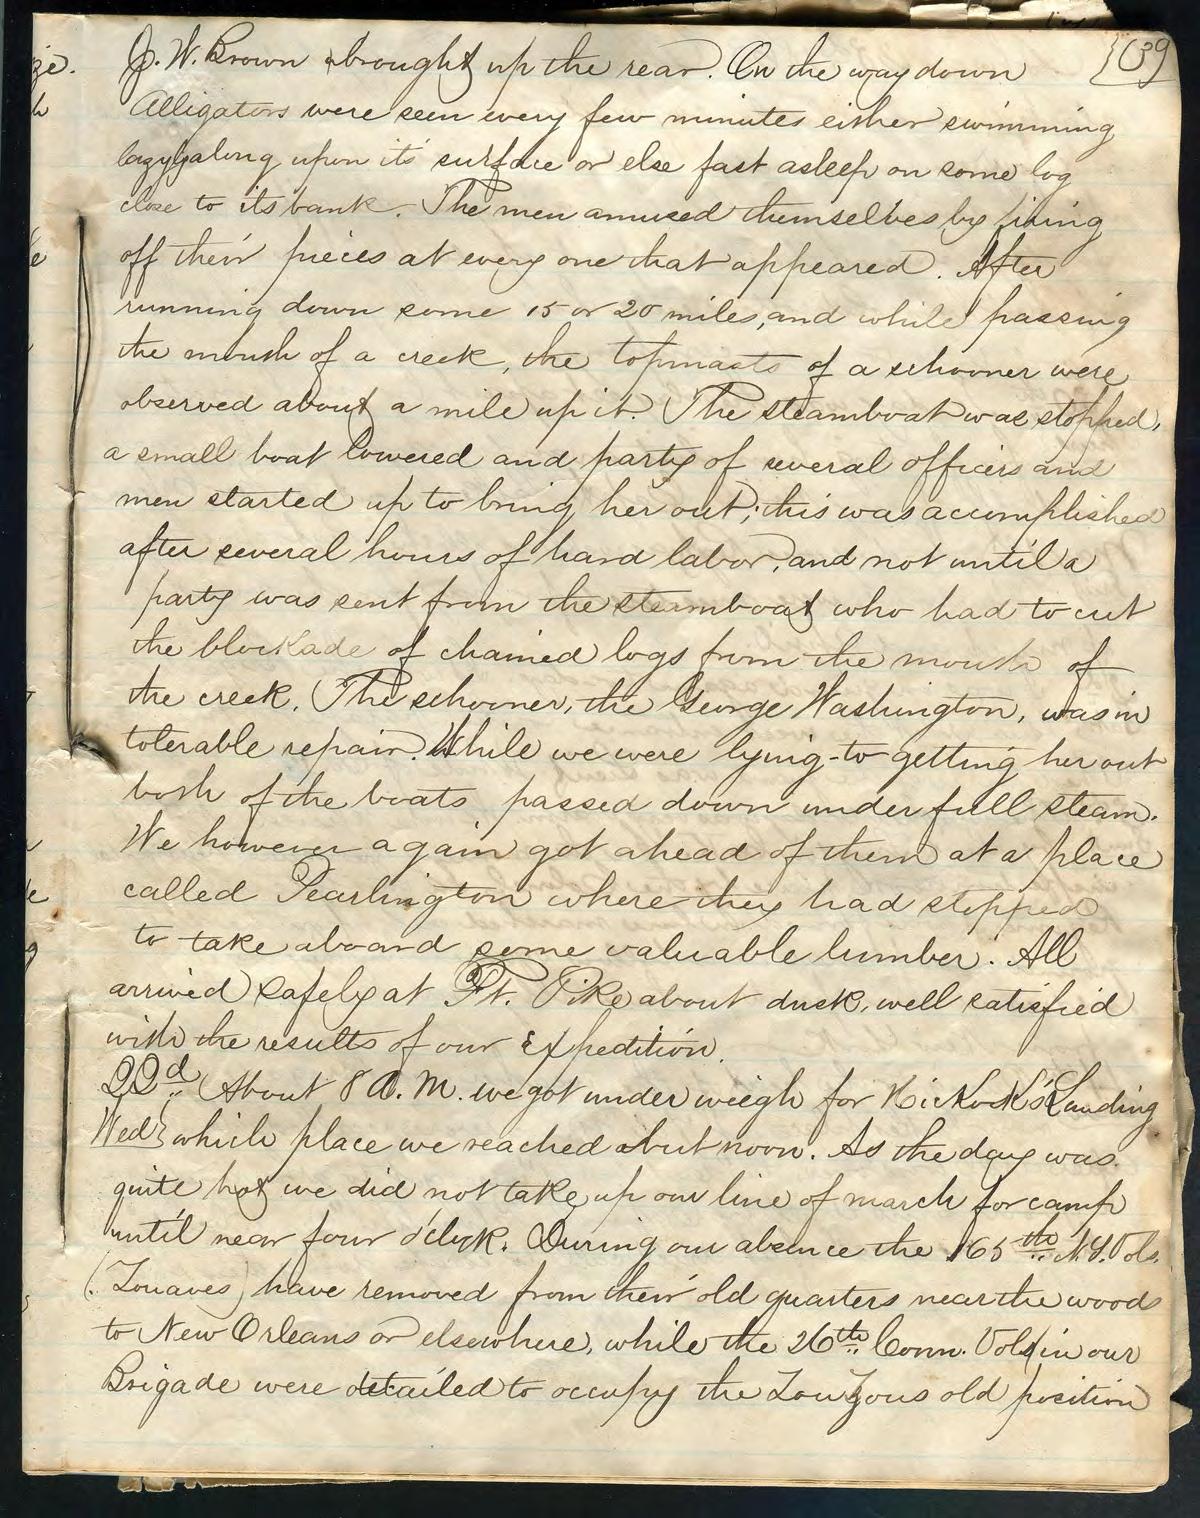 {139
J. W. Brown brought up the rear. On the way down
Alligators were seen every few minutes either swimming
lazy along upon its surface or else fast asleep on some log
close to its bank. The men amused themselves by firing
off their pieces at every one that appeared. After
running down some 15 or 20 miles, and while passing
the mouth of a creek, the topmasts of a schooner were
observed about a mile up it. The steamboat was stopped,
a small boat lowered and party of several officers and
men started up to bring her out; this was accomplished
after several hours of hard labor, and not until a
party was sent from the steamboat who had to cut
the blockade of chained logs from the mouth of
the creek. The schooner, the George Washington, was in
tolerable repair. While we were lying-to getting her out
both of the boats passed down under full steam.
We however again got ahead of them at a place
called Pearlington where they had stopped
to take aboard some valuable lumber. All
arrived safely at Ft. Pike about dusk, well satisfied
with the results of our Expedition.
22d { About 8 A. M. we got under weigh for Hickock's Landing
Wed } which place we reached about noon. As the day was
quite hot we did not take up our line of march for camp
until near four o'clock. During our absence the 165th N.Y. Vols.
(Zouaves) have removed from their old quarters near the woods
to New Orleans or elsewhere, while the 26th Conn. Vols (in our
Brigade were detailed to occupy the ZouZous old position